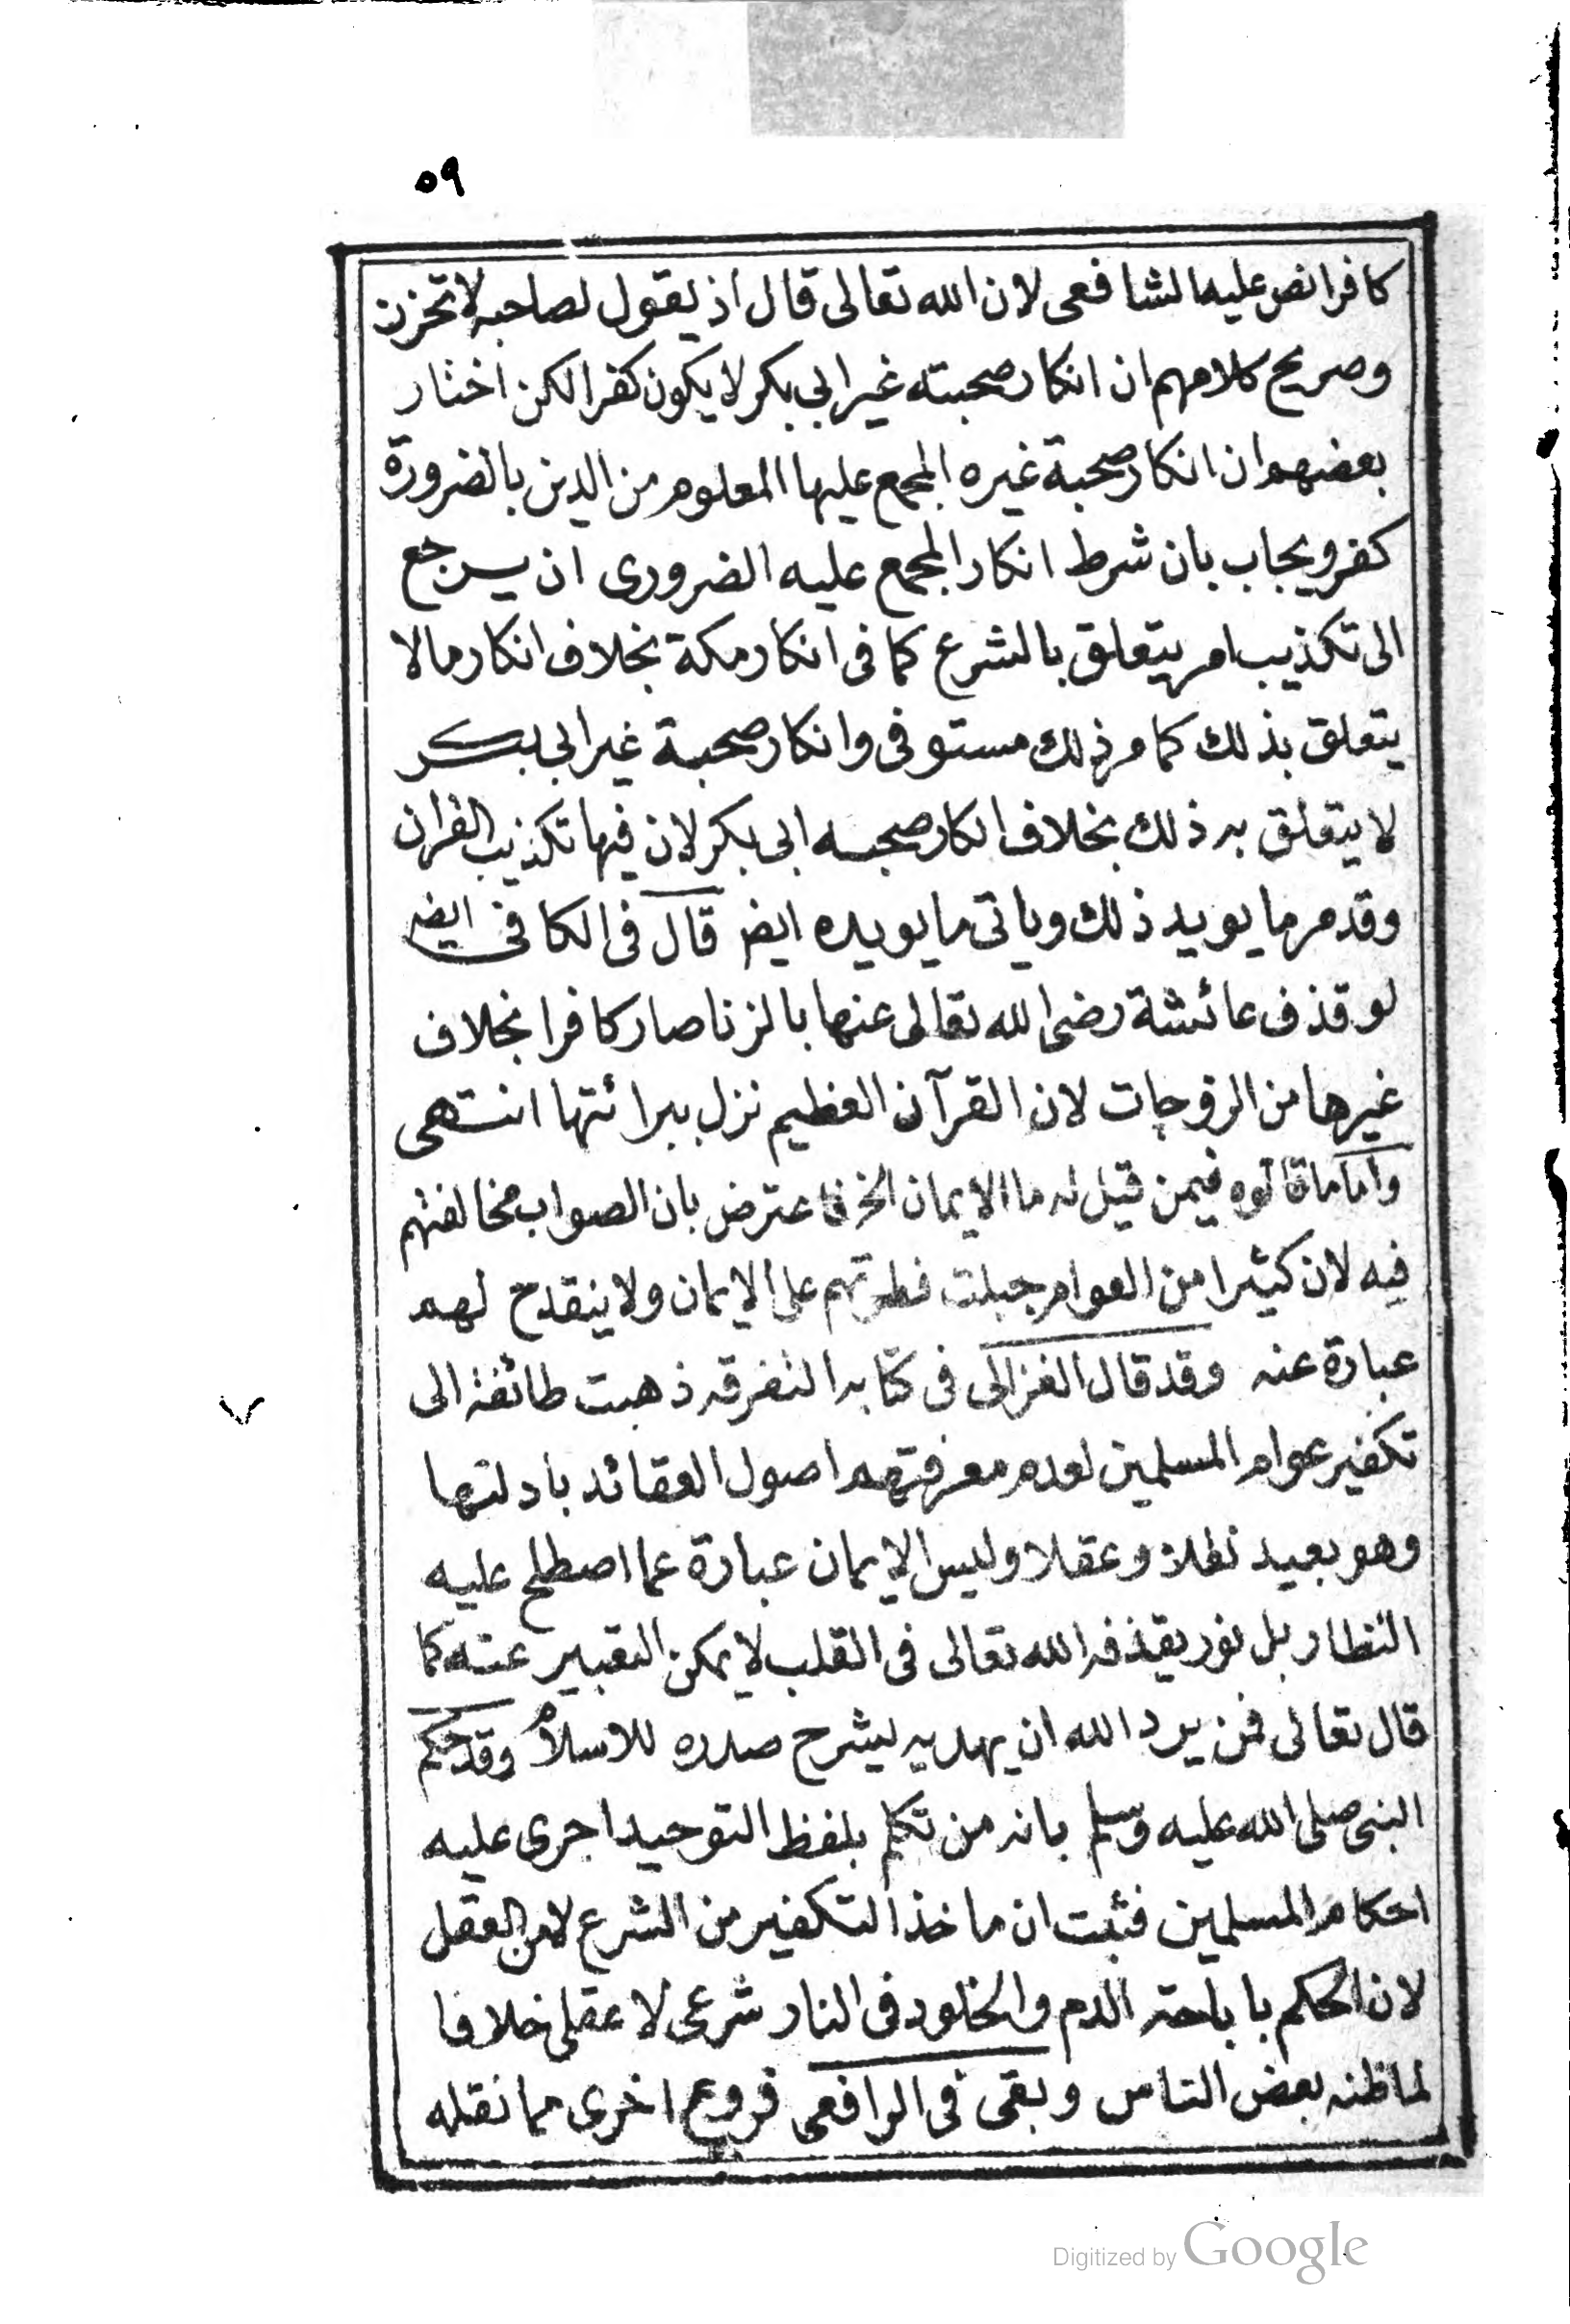 ٥٩
كافرا نص عليه الشافعى لان الله تعالى قال اذ يقول لصاحبه لا تحزن
وصريح كلامهم ان انكار صحبته غير ابى بكر لا يكون كفرا لكن اختار
بعضهم ان انكار صحبة غيره المجمع عليها المعلوم من الدين بالضرورة
كفر ويجاب بان شرط انكار المجمع عليه الضرورى ان يرجع
الى تكذيب امر يتعلق بالشرع كما فى انكار مكة بخلاف انكار مالا
يتعلق بذلك كما مر ذلك مستوفى وانكار صحبة غير ابى بكر
لا يتعلق به ذلك بخلاف انكار صحبه ابى بكر لان فيها تكذيب القران
وقد مر ما يويد ذلك وياتى ما يويده ايض قال فى الكافى ايض
لو قذف عائشة رضى الله تعالى عنها بالزنا صار كافرا بخلاف
غيرها من الزوجات لان القرآن العظيم نزل ببرائتها انتهى
واما ما قالوه فيمن قيل له ما الايمان الخ فاعترض بان الصواب مخالفتهم
فيه لان كثيرا من العوام جبلت فطرتهم على الايمان ولا ينقدح لهم
عبارة عنه وقد قال الغزالى فى كتابه التفرقه ذهبت طائفة الى
تكفير عوام المسلمين لعدم معرفتهم اصول العقائد بادلتها
وهو بعيد نقلا وعقلا وليس الايمان عبارة عما اصطلح عليه
النظار بل نور يقذفه الله تعالى فى القلب لا يمكن التعبير عنه كما
قال تعالى فمن يرد الله ان يهديه ليشرح صدره للاسلام وقد حكم
النبى صلى الله عليه وسلم بانه من تكلم بلفظ التوحيد اجرى عليه
احكام المسلمين فثبت ان ماخذ التكفير من الشرع لا من العقل
لان الحكم باباحة الدم والخلود فى النار شرعى لا عقلى خلافا
لما ظنه بعض الناس وبقى فى الرافعى فروع اخرى مما نقله
Digitized by Google